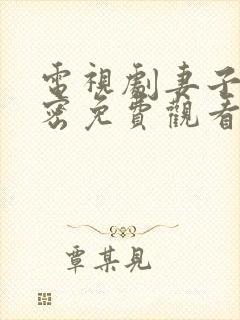 電視劇妻子
密免費觀看
覃某見